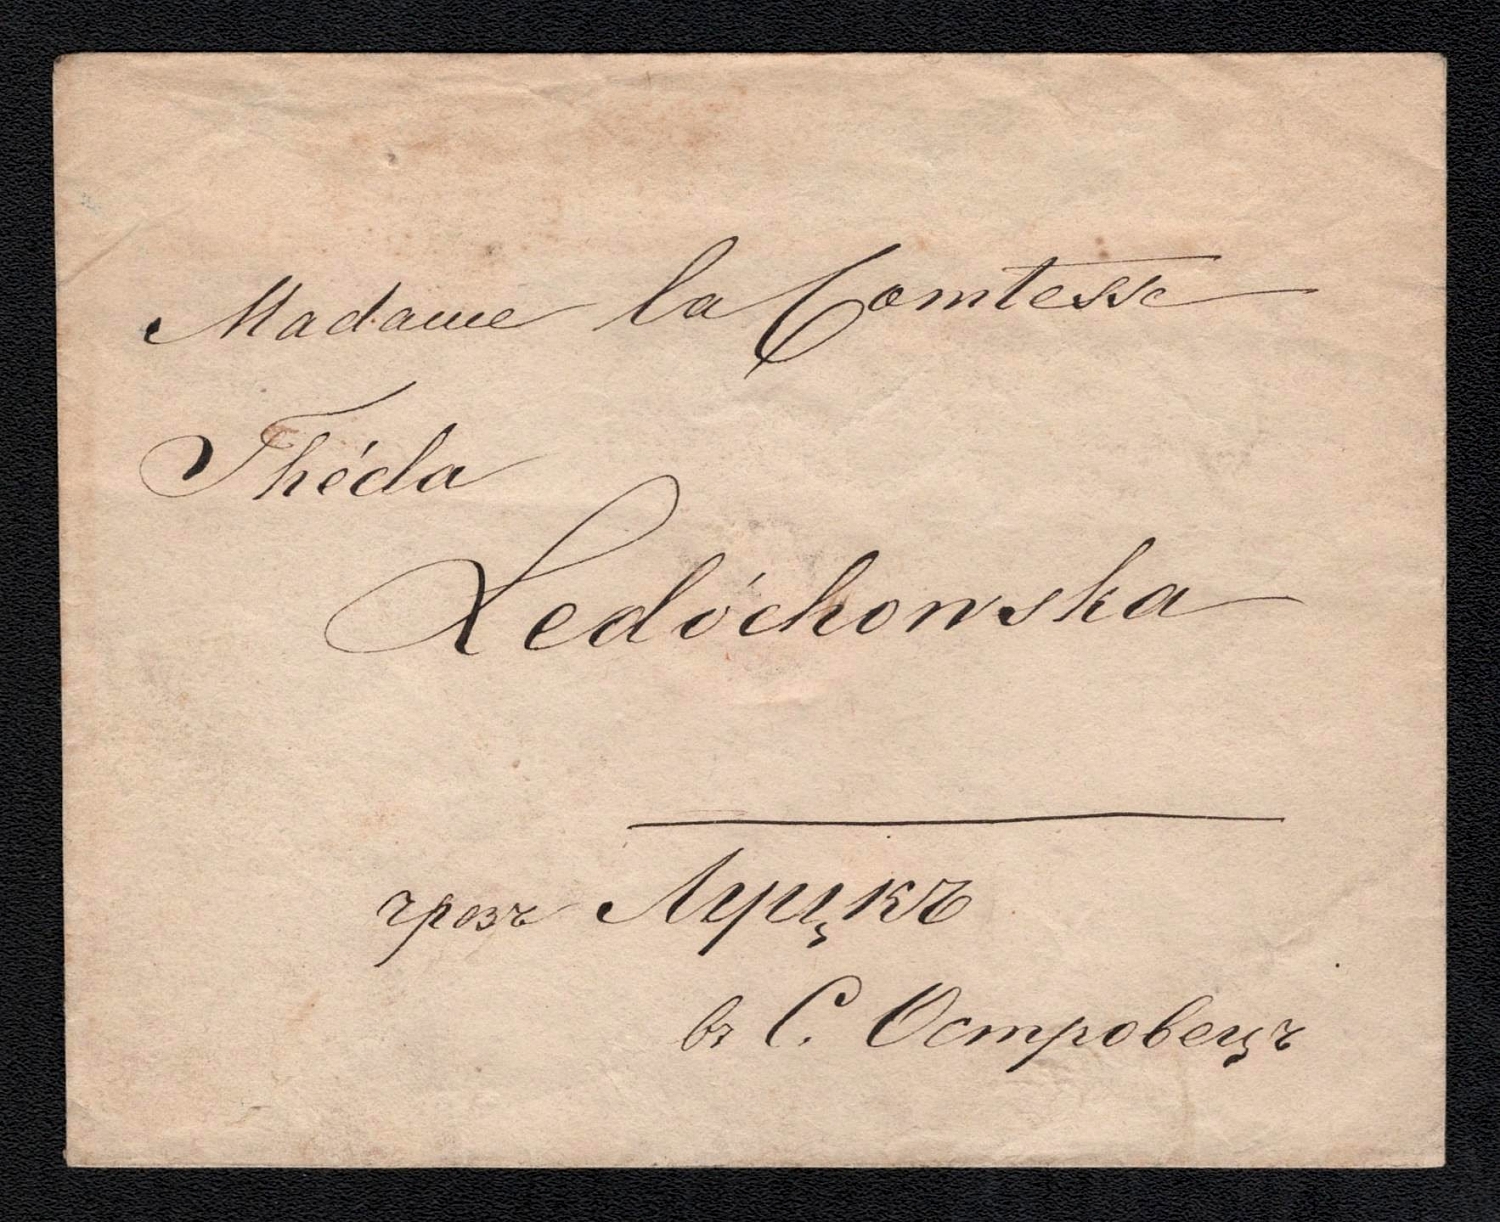 Madame la Comtesse
Théda
Ledóchowska
чрезъ Луцкъ
въ С. Островецъ